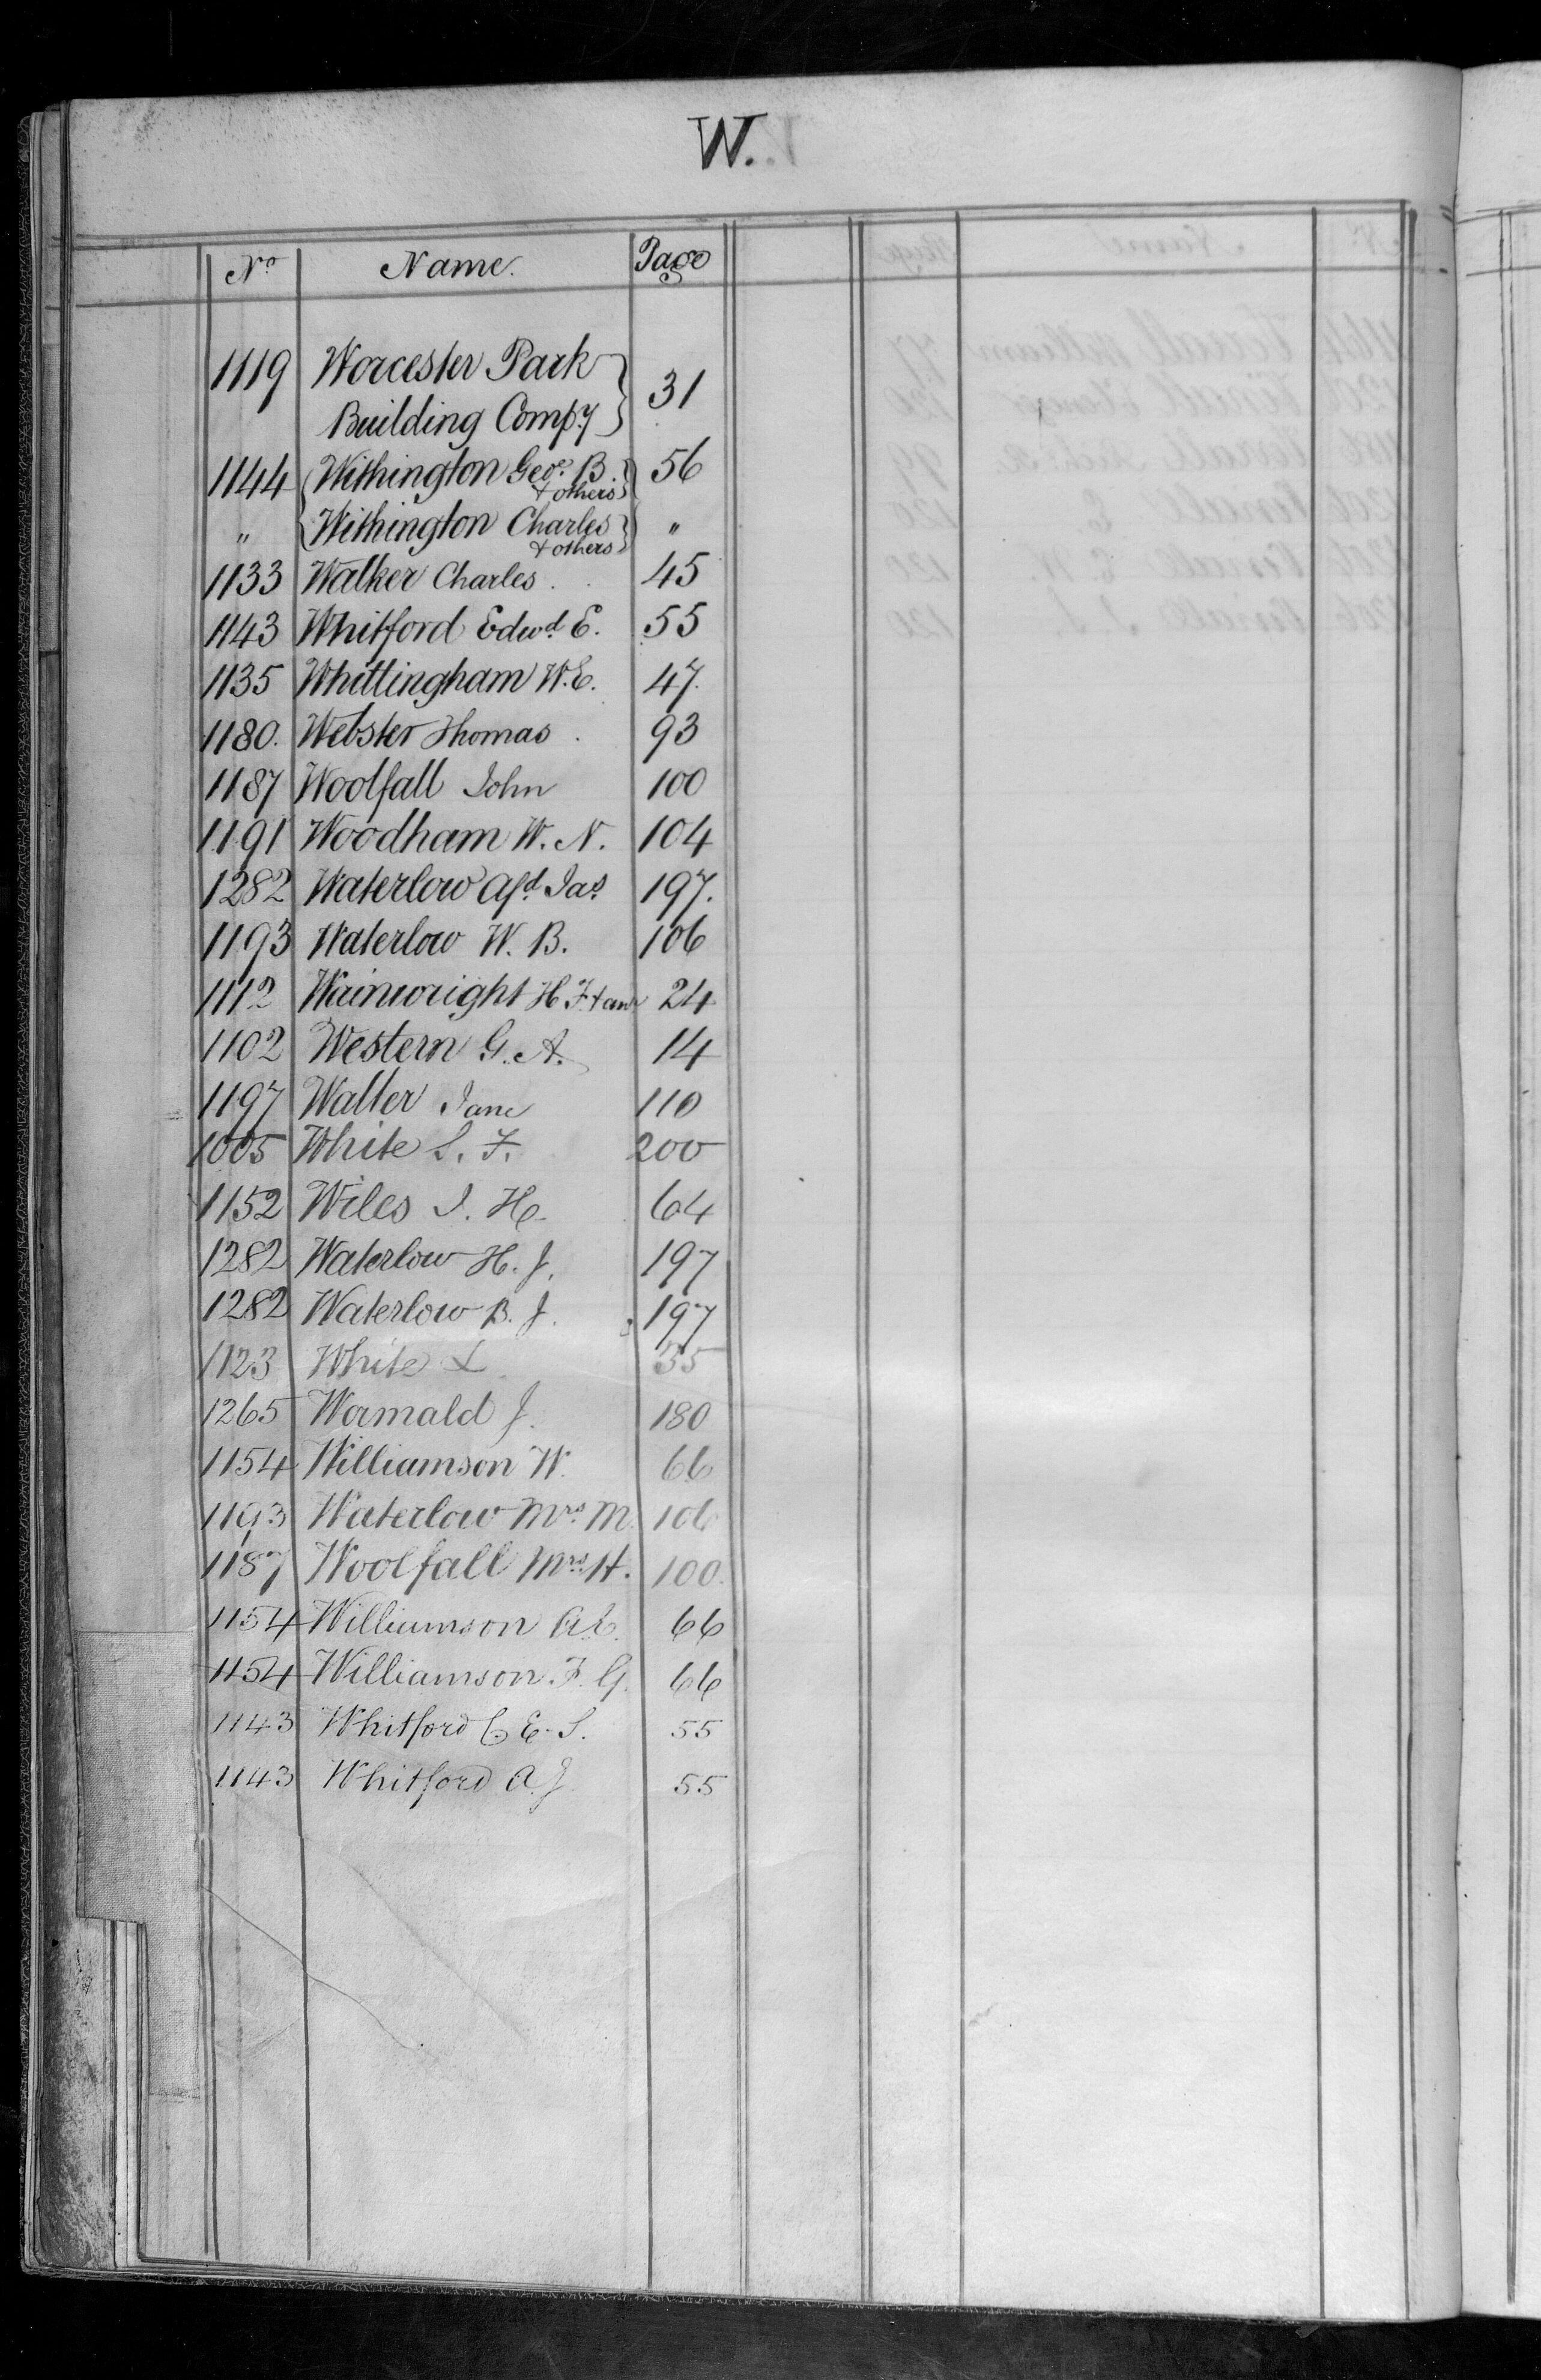 W.
No Name. Page
1119 Worcester Park
Building Compy } 31
1144 { Withington Geo. B. } 56
& others
" { Withington Charles } "
& others
1133 Walker Charles . 45
1143 Whitford Edwd E. 55
1135 Whittingham W.E. 47.
1180. Webster Thomas . 93
1187 Woolfall John 100
1191 Woodham W. N. 104
1282 Waterlow Afd Jas 197.
1193 Waterlow W. B. 106
1112 Wainwright H F & anr 24
1102 Western G. A. 14
1197 Walter Jane 110
1005 White S. F. 200
1152 Wiles J. H. 64
1282 Waterlow H. J. 197
1282 Waterlow B. J. 197
1123 White L 35
1265 Wormald J. 180
1154 Williamson W. 66
1193 Waterlow Mrs M. 106
1187 Woolfall Mrs H. 100.
1154 Williamson A.E. 66
1154 Williamson F. G. 66
1143 Whitford C. E. S. 55
1143 Whitford A. J. 55